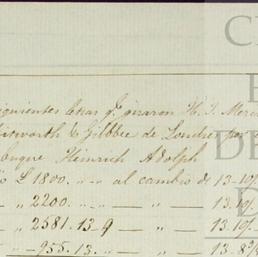 siguientes letras q.e giraron H. J. Merc
itworth & Gibbee de Londres por
buque Heinrich Adolph
£ 1800. " " al cambio de 13-10
" 2200. " " — " — 13.10/
" 2581.13.9 — " — 13.10/
" 955.13. " — " — 13-8/
C
E
DE
D